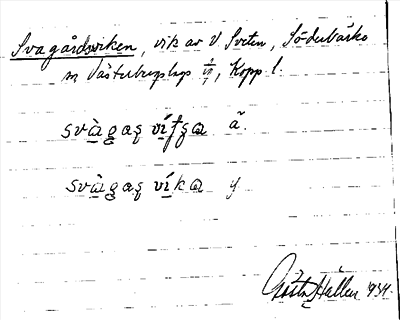 Svagårdsviken, vik av V. Sveten, Söderbärke
sn Västerbergslags Kopp. l.
svàgas vítsa ä.
svàgas víka y
Gösta Hallen 1934.